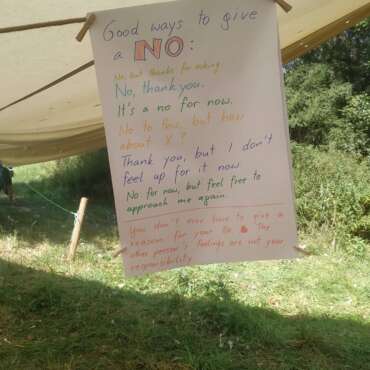 Good ways to give
a NO:
No, but thanks for asking
No, thank you.
It's a no for now.
No to , but how
about X?
Thank you, but I don't
feel up for it now.
No for now, but feel free to
approach me again
You don't ever have to give a
reason for your No. The
other person's feelings are not your
responsibility